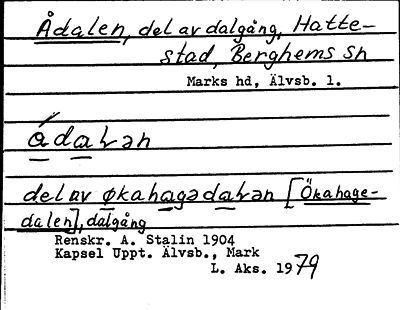 Ådalen, del av dalgång, Hatte-
stad, Berghems sn
Marks hd, Älvsb. l.
ádaLən
del av økahagədaLən [Ökahage-
dalen], dalgång
Renskr. A. Stalin 1904
Kapsel Uppt. Älvsb., Mark
L. Aks. 1979